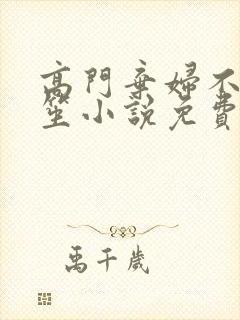 高門棄婦不
笙小說免費
禹千歲